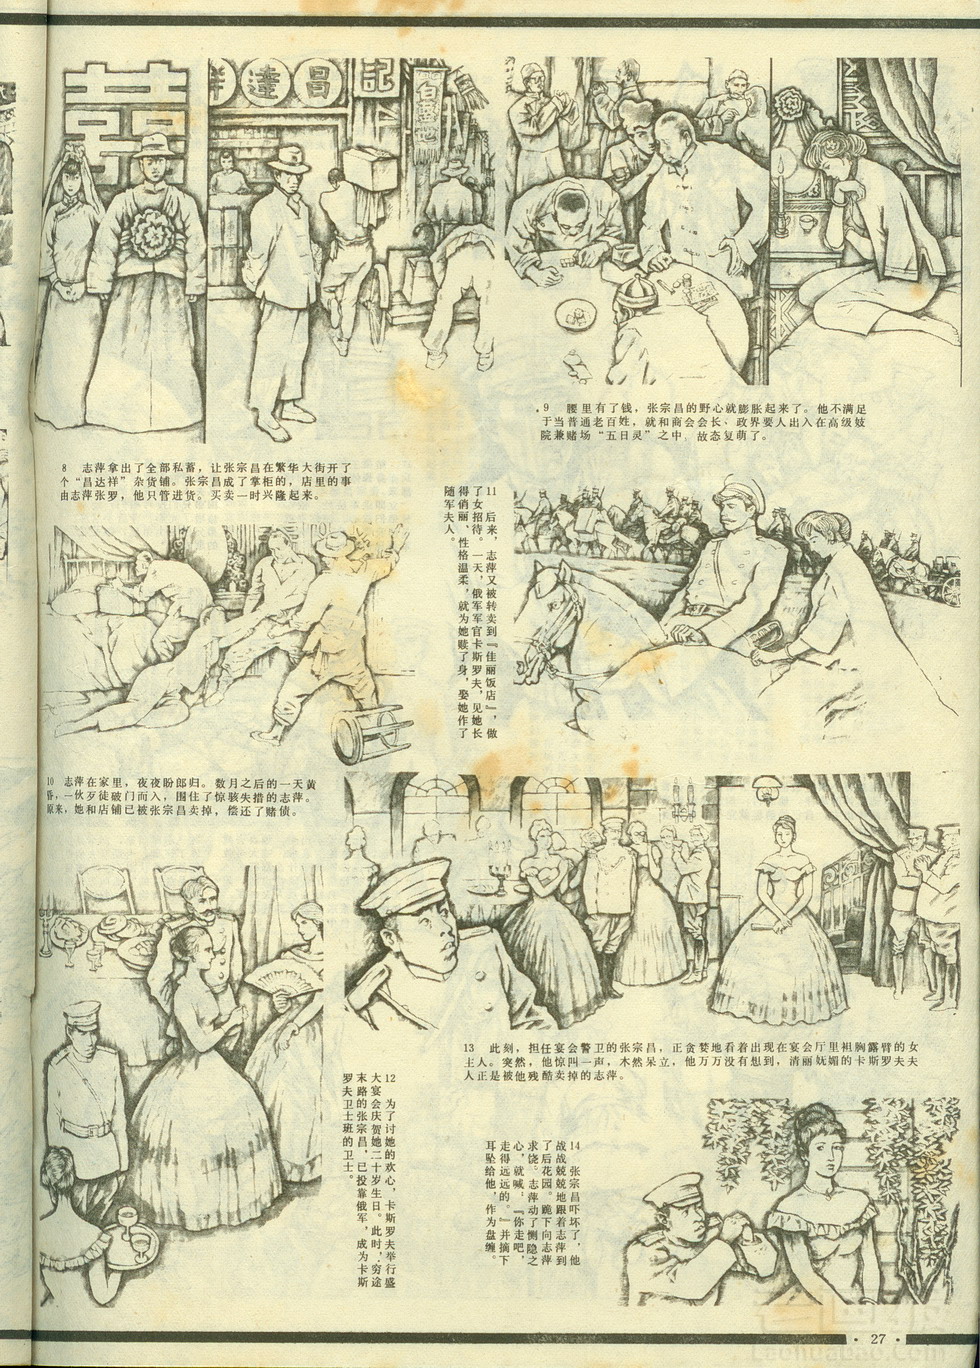 囍
祥
達
昌
記
8 志萍拿出了全部私蓄，让张宗昌在繁华大街开了
个“昌达祥”杂货铺。张宗昌成了掌柜的，店里的事
由志萍张罗，他只管进货。买卖一时兴隆起来。
9 腰里有了钱，张宗昌的野心就膨胀起来了。他不满足
于当普通老百姓，就和商会会长、政界要人出入在高级妓
院兼赌场“五日灵”之中，故态复萌了。
10 志萍在家里，夜夜盼郎归。数月之后的一天黄
昏，一伙歹徒破门而入，围住了惊骇失措的志萍。
原来，她和店铺已被张宗昌卖掉，偿还了赌债。
11 后来，志萍又被转卖到『佳丽饭店』，做
了女招待。一天，俄军军官卡斯罗夫，见她长
得俏丽、性格温柔，就为她赎了身，娶她作了
随军夫人。
12 为了讨她的欢心，卡斯罗夫举行盛
大宴会庆贺她二十岁生日。此时，穷途
末路的张宗昌，已投靠俄军，成为卡斯
罗夫卫士班的卫士。
13 此刻，担任宴会警卫的张宗昌，正贪婪地看着出现在宴会厅里袒胸露臂的女
主人。突然，他惊叫一声，木然呆立，他万万没有想到，清丽妩媚的卡斯罗夫夫
人正是被他残酷卖掉的志萍。
14 张宗昌吓坏了，他
战战兢兢地跟着志萍到
了后花园。跪下向志萍
求饶。志萍动了恻隐之
心，就喊：『你走吧，
走得远远的。』并摘下
耳坠给他，作为盘缠。
· 27 ·